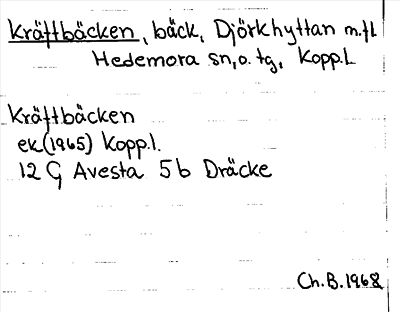 Kräftbäcken, bäck, Djörkhyttan m.fl.
Hedemora sn, o. tg, Kopp.l.
Kräftbäcken
ek (1965) Kopp.l.
12 G Avesta 5 b Dräcke
Ch.B. 1968